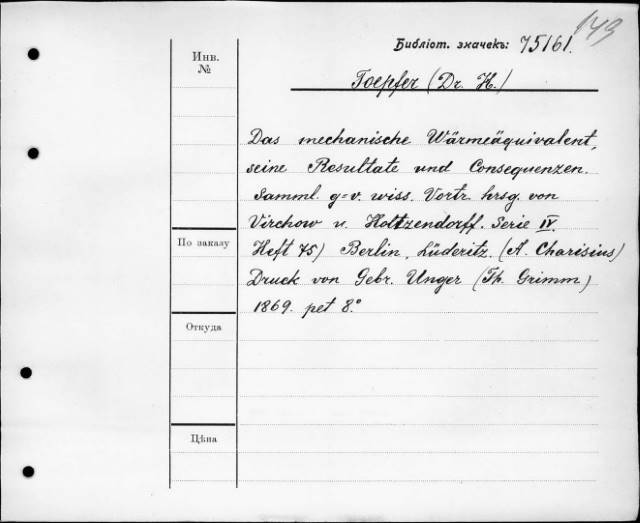 143
Библіот. значекъ: 75161.
Инв.
№
Toepfer (Dr. H.)
Das mechanische Wärmeäquivalent,
seine Resultate und Consequenzen.
Samml. g=v. wiss. Vortr. hrsg. von
Virchow u. Holtzendorff. Serie IV.
Heft 75) Berlin, Lüderitz. (A. Charisius)
Druck von Gebr. Unger (Th. Grimm)
1869. pet 8.°
По заказу
Откуда
Цѣна